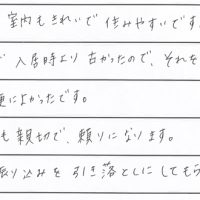 室内もきれいで住みやすいです
入居時より古かったので、それを
便によかったです。
も親切で、頼りになります。
り込みを引き落としにしてもら